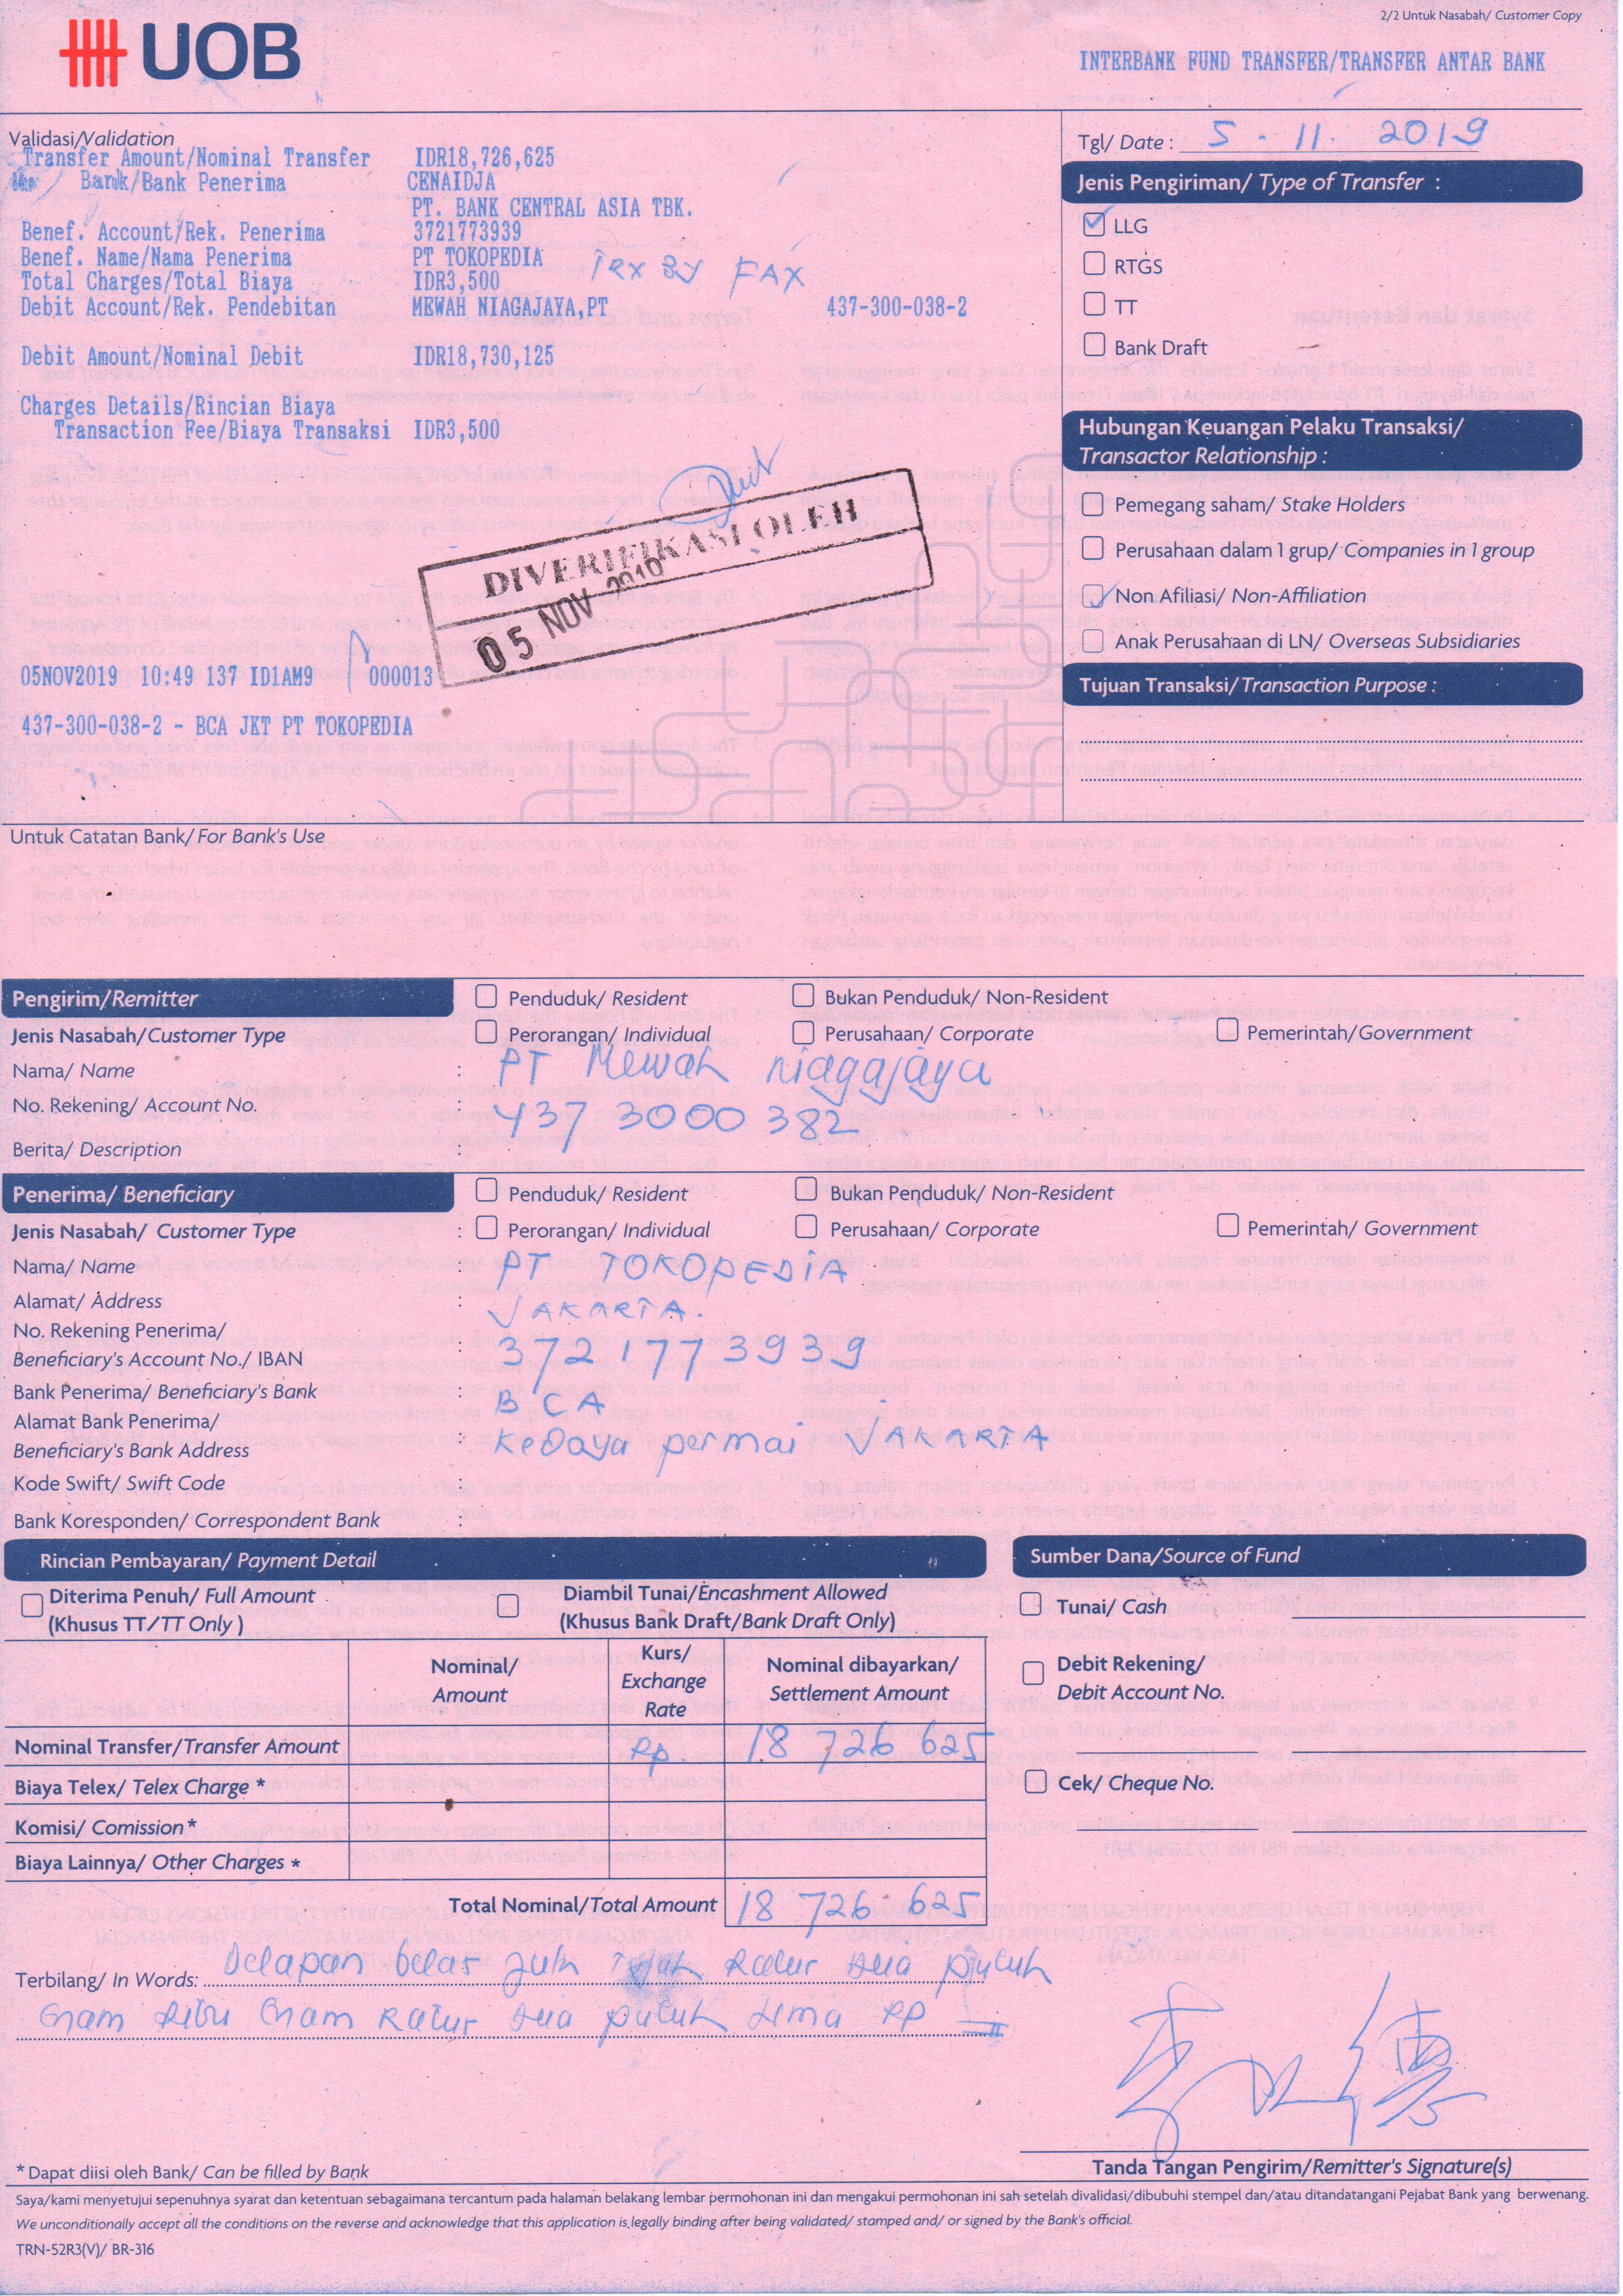 2/2 Untuk Nasabah/ Customer Copy
UOB
INTERBANK FUND TRANSFER/TRANSFER ANTAR BANK
Validasi/Validation
Transfer Amount/Nominal Transfer IDR18,726,625
Bank/Bank Penerima CENAIDJA
PT. BANK CENTRAL ASIA TBK.
Benef. Account/Rek. Penerima 3721773939
Benef. Name/Nama Penerima PT TOKOPEDIA
TRX BY FAX
Total Charges/Total Biaya IDR3,500
Debit Account/Rek. Pendebitan MEWAH NIAGAJAYA,PT 437-300-038-2
Debit Amount/Nominal Debit IDR18,730,125
Charges Details/Rincian Biaya
Transaction Fee/Biaya Transaksi IDR3,500
DIVERIFIKASI OLEH
05 NOV 2019
05NOV2019 10:49 137 ID1AM9 000013
437-300-038-2 - BCA JKT PT TOKOPEDIA
Tgl/ Date : 5 - 11. 2019
Jenis Pengiriman/ Type of Transfer :
LLG
RTGS
TT
Bank Draft
Hubungan Keuangan Pelaku Transaksi/
Transactor Relationship :
Pemegang saham/ Stake Holders
Perusahaan dalam 1 grup/ Companies in 1 group
Non Afiliasi/ Non-Affiliation
Anak Perusahaan di LN/ Overseas Subsidiaries
Tujuan Transaksi/ Transaction Purpose :
Untuk Catatan Bank/ For Bank's Use
Pengirim/Remitter Penduduk/ Resident Bukan Penduduk/ Non-Resident
Jenis Nasabah/Customer Type Perorangan/ Individual Perusahaan/ Corporate Pemerintah/Government
Nama/ Name : PT Mewah niagajaya
No. Rekening/ Account No. : 437 3000 382
Berita/ Description :
Penerima/ Beneficiary Penduduk/ Resident Bukan Penduduk/ Non-Resident
Jenis Nasabah/ Customer Type : Perorangan/ Individual Perusahaan/ Corporate Pemerintah/ Government
Nama/ Name : PT TOKOPEDIA
Alamat/ Address : JAKARTA.
No. Rekening Penerima/
Beneficiary's Account No./ IBAN : 372 177 3939
Bank Penerima/ Beneficiary's Bank : BCA
Alamat Bank Penerima/
Beneficiary's Bank Address : Kedoya permai JAKARTA
Kode Swift/ Swift Code :
Bank Koresponden/ Correspondent Bank :
Rincian Pembayaran/ Payment Detail
Diterima Penuh/ Full Amount
(Khusus TT/TT Only )
Diambil Tunai/Encashment Allowed
(Khusus Bank Draft/Bank Draft Only)
Nominal/ Amount
Kurs/ Exchange Rate
Nominal dibayarkan/ Settlement Amount
Nominal Transfer/Transfer Amount Rp. 18 726 625
Biaya Telex/ Telex Charge *
Komisi/ Comission *
Biaya Lainnya/ Other Charges *
Total Nominal/Total Amount 18 726 625
Sumber Dana/Source of Fund
Tunai/ Cash
Debit Rekening/
Debit Account No.
Cek/ Cheque No.
Terbilang/ In Words: Delapan belas juta Tujuh Ratur dua puluh
Enam Ribu Enam Ratur dua puluh Lima RP
Tanda Tangan Pengirim/Remitter's Signature(s)
* Dapat diisi oleh Bank/ Can be filled by Bank
Saya/kami menyetujui sepenuhnya syarat dan ketentuan sebagaimana tercantum pada halaman belakang lembar permohonan ini dan mengakui permohonan ini sah setelah divalidasi/dibubuhi stempel dan/atau ditandatangani Pejabat Bank yang berwenang.
We unconditionally accept all the conditions on the reverse and acknowledge that this application is legally binding after being validated/ stamped and/ or signed by the Bank's official.
TRN-52R3(V)/ BR-316